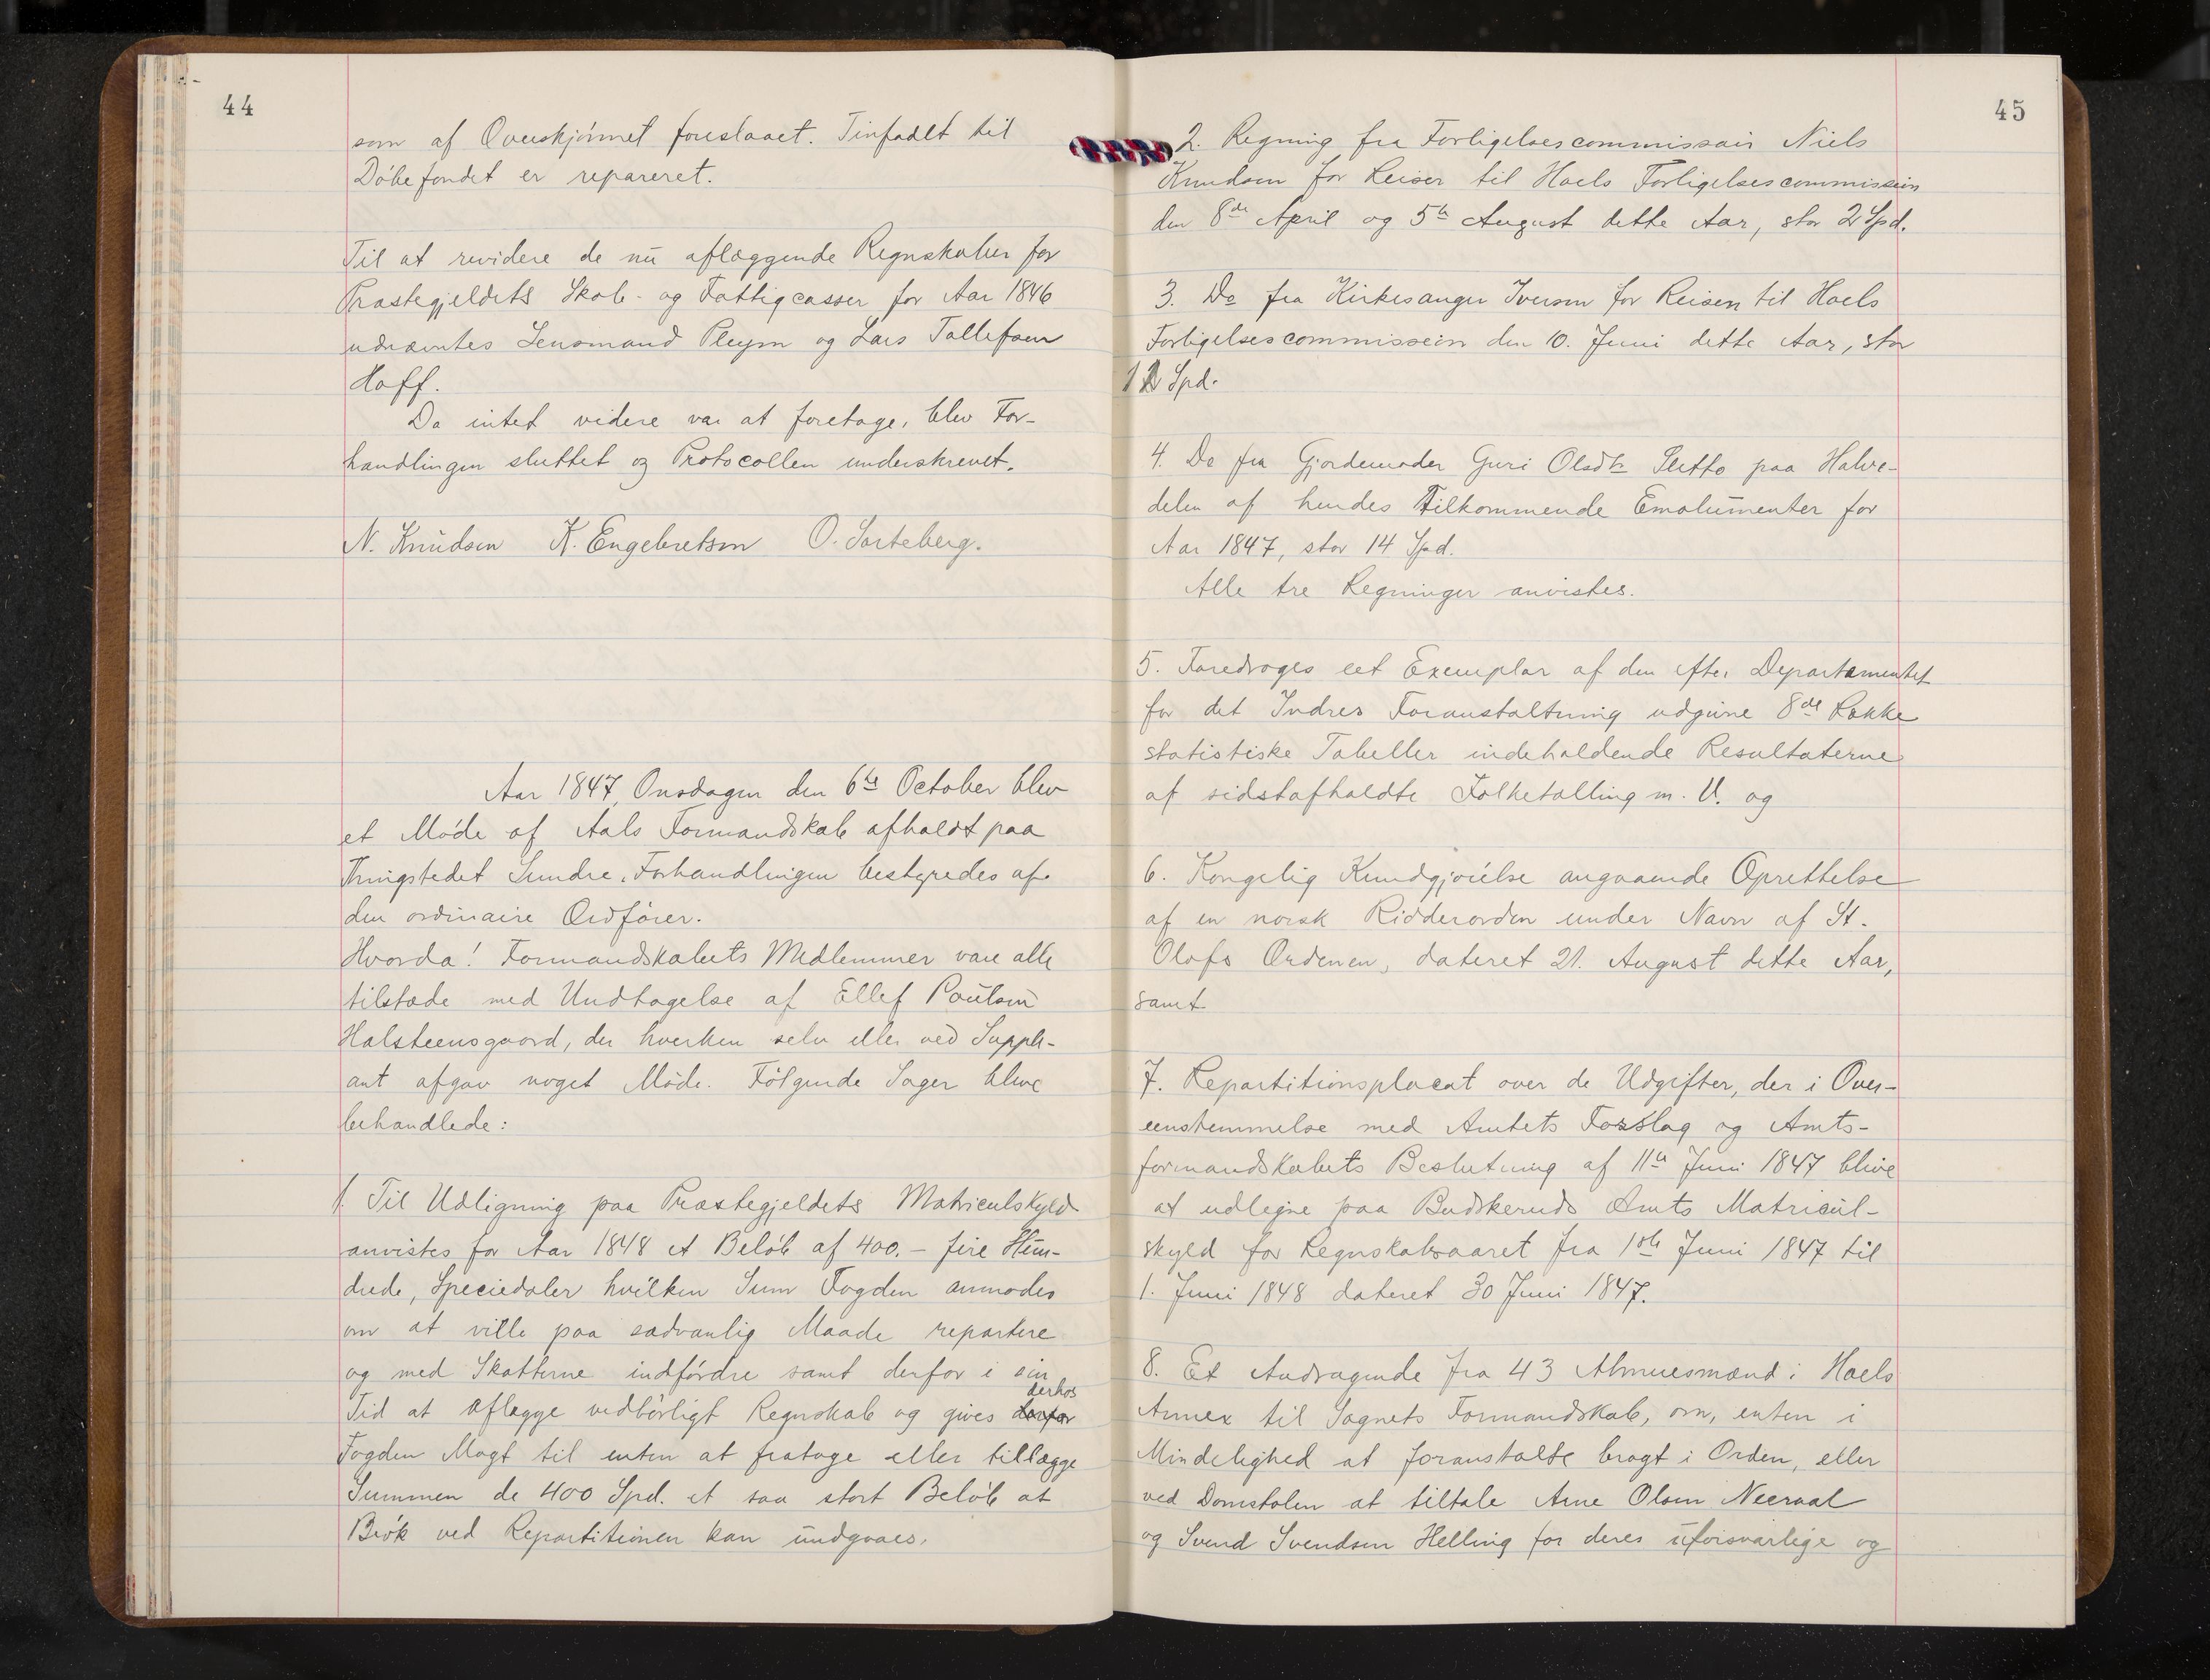 44
som af Overskjønnet foreslaaet. Tinfadet til
Døbefondet er repareret.
Til at revidere de nu aflæggende Regnskaber for
Præstegjeldets Skole- og Fattigcasser for Aar 1846
udnævntes Lensmand Pleym og Lars Tollefsen
Hoff.
Da intet videre var at foretage, blev For-
handlingen sluttet og Protocollen underskrevet.
N. Knudsen K. Engebretsen O. Sorteberg.
Aar 1847, Onsdagen den 6te October blev
et Møde af Aals Formandskab afholdt paa
Thingstedet Sundre. Forhandlingen bestyredes af
den ordinaire Ordfører.
Hvorda! Formandskabets Medlemmer vare alle
tilstæde med Undtagelse af Ellef Poulsen
Halsteensgaard, der hverken selv eller ved Supple-
ant afgav noget Møde. Følgende Sager bleve
behandlede:
1. Til Udligning paa Præstegjeldets Matriculskyld
anvistes for Aar 1848 et Beløb af 400.- fire Hun-
drede, Speciedaler hvilken Sum Fogden anmodes
om at ville paa sædvanlig Maade repartere
og med Skatterne indfordre samt derfor i sin
derhos
Tid at aflægge vedbørligt Regnskab og gives derfor
Fogden Magt til enten at fratage eller tillægge
Summen de 400 Spd. et saa stort Beløb at
Brøk ved Repartitionen kan undgaaes.
45
2. Regning fra Forligelsescommissair Niels
Knudsen for Reiser til Hoels Forligelsescommission
den 8de April og 5te August dette Aar, stor 2 Spd.
3. Do fra Kirkesanger Iverson for Reisen til Hoels
Forligelsescommission den 10. Juni dette Aar, stor
1 Spd.
4. Do fra Gjordemoder Guri Olsdtr Sletto paa Halve-
delen af hendes Tilkommende Emolumenter for
Aar 1847, stor 14 Spd.
Alle tre Regninger anvistes.
5. Foredroges eet Exemplar af den efter Departementet
for det Indres Foranstaltning udgivne 8de Række
statistiske Tabeller indeholdende Resultaterne
af sidstafholdte Folketælling m. V. og
6. Kongelig Kundgjørelse angaaende Oprettelse
af en norsk Ridderorden under Navn af St.
Olafs Ordenen, dateret 21. August dette Aar,
samt
7. Repartitionsplacat over de Udgifter, der i Over-
eenstemmelse med Amtets Forslag og Amts-
formandskabets Beslutning af 11te Juni 1847 blive
at udlegne paa Budskeruds Amts Matricul-
skyld for Regnskabsaaret fra 1ste Juni 1847 til
1. Juni 1848 dateret 30 Juni 1847.
8. Et Andragende fra 43 Almuesmænd i Hoels
Annex til Sognets Formandskab, om, enten i
Mindelighed at foranstalte bragt i Orden, eller
ved Domstolen at tiltale Arne Olsen Neeraal
og Svend Svendsen Helling for deres uforsvarlige og